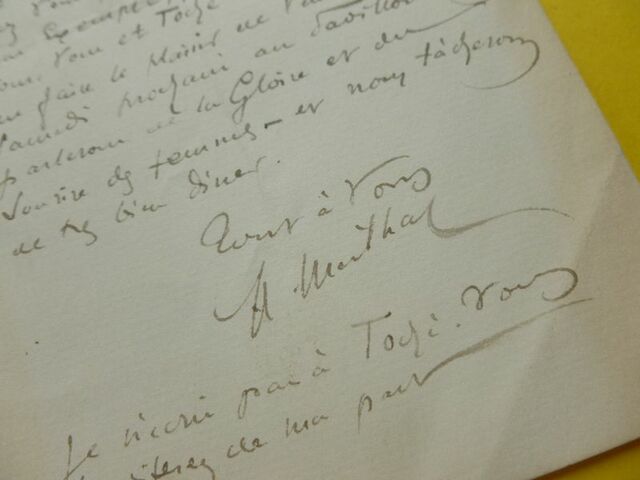 exemple
Vous et Toché
faire le plaisir de
samedi prochain au Pavillon
parlerons de la Gloire et du
Sourire des femmes - et nous tâcherons
de très bien dîner.
Tout à Vous
Je n'écris pas à Toché. Vous
de ma part